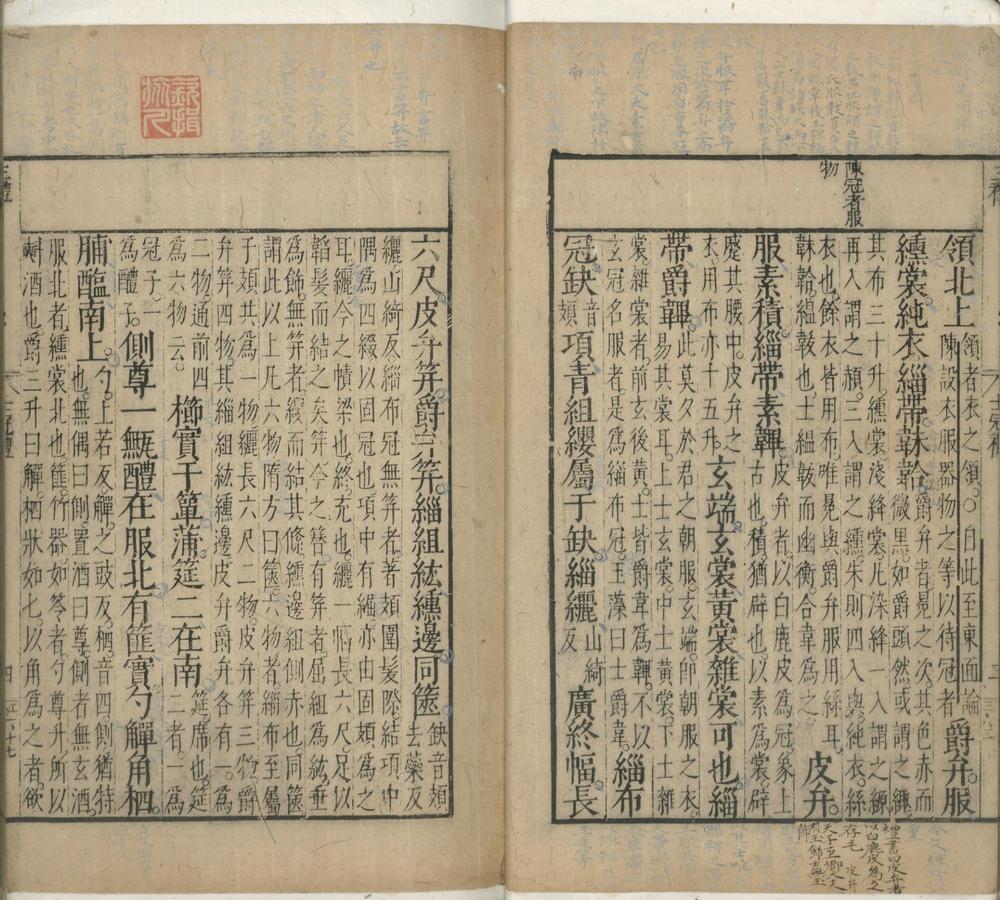 陳冠者服
物
領北上
領者衣之領○自此至東面論
陳設衣服器物之等以待冠者
爵弁服
纁裳純衣緇帶韎韐
爵弁者冕之次其色赤而
微黑如爵頭然或謂之緅
其布三十升纁裳淺絳裳凡染絳一入謂之縓
再入謂之赬三入謂之纁朱則四入與純衣絲
衣也餘衣皆用布唯冕與爵弁服用絲耳
韎韐縕韍也士縕韍而幽衡合韋為之
皮弁
服素積緇帶素韠
皮弁者以白鹿皮為冠象上
古也積猶辟也以素為裳辟
蹙其腰中皮弁之
衣用布亦十五升
玄端玄裳黃裳雜裳可也緇
帶爵韠
此莫夕於君之朝服玄端即朝服之衣
易其裳耳上士玄裳中士黃裳下士雜
裳雜裳者前玄後黃士皆爵韋為韠不以
玄冠名服者是為緇布冠玉藻曰士爵韋
緇布
冠缺
音
頍
項青組纓屬于缺緇纚
山綺
反
廣終幅長
禮書曰皮弁者
以白鹿皮為之
存毛 皮弁
六尺皮弁笄爵弁笄緇組紘纁邊同篋
缺音頍
去蘂反
纚山綺反緇布冠無笄者著頍圍髮際結項中
隅為四綴以固冠也項中有䋿亦由固頍為之
耳纚今之幘梁也終充也纚一幅長六尺足以
韜髮而結之矣笄今之簪有笄者屈組為紘垂
為飾無笄者纓而結其絛纁邊組側赤也同篋
謂此以上凡六物隋方曰篋六物者緇布至屬
于頍其為一物纚長六尺二物皮弁笄三物爵
弁笄四物其緇組紘纁邊皮弁爵弁各有一為
二物通前四
為六物云
櫛實于簞蒲筵二在南
筵席也筵
二者一為
冠子一
為醴子
側尊一甒醴在服北有篚實勺觶角柶
脯醢南上
勺上若反觶之豉反柶音四側猶特
也無偶曰側置酒曰尊側者無玄酒
服北者纁裳北也篚竹器如笭者勺尊升所以
㪺酒也爵三升曰觶柶狀如匕以角為之者欲